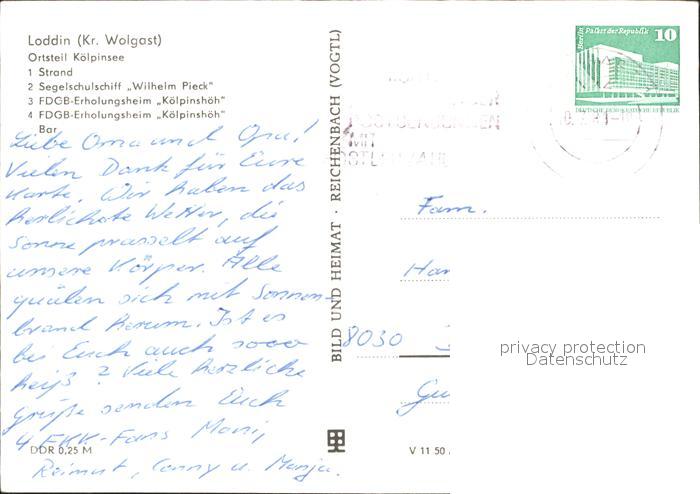 Loddin (Kr. Wolgast)
Ortsteil Kölpinsee
1 Strand
2 Segelschulschiff „Wilhelm Pieck“
3 FDGB-Erholungsheim „Kölpinshöh“
4 FDGB-Erholungsheim „Kölpinshöh“
Bar
Liebe Oma und Opa!
Vielen Dank für Eure
Karte. Wir haben das
herlichste Wetter, die
Sonne prasselt auf
unsere Körper. Alle
quälen sich mit Sonnen-
brand herum. Ist es
bei Euch auch sooo
heiß? Viele herzliche
Grüße senden Euch
4 FKK-Fans Moni,
Reimut, Conny u. Manja.
DDR 0,25 M
BILD UND HEIMAT · REICHENBACH (VOGTL)
V 11 50
Berlin Palast der Republik
10
DEUTSCHE DEMOKRATISCHE REPUBLIK
MIT
Fam.
Han
8030
Gu
privacy protection
Datenschutz